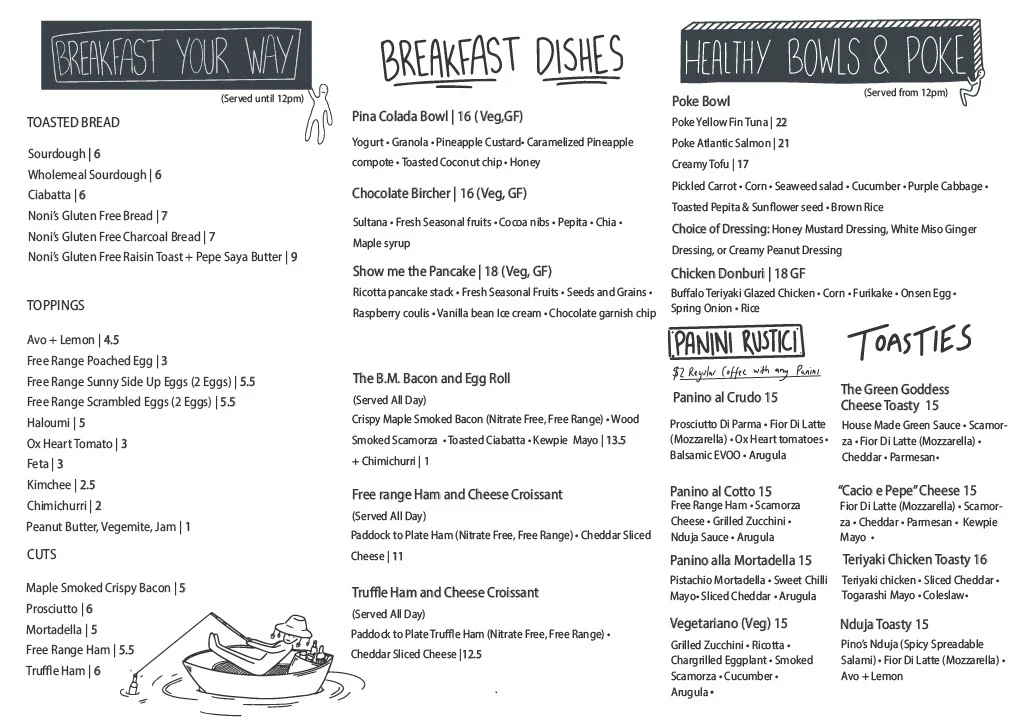 BREAKFAST YOUR WAY
(Served until 12pm)
TOASTED BREAD
Sourdough | 6
Wholemeal Sourdough | 6
Ciabatta | 6
Noni's Gluten Free Bread | 7
Noni's Gluten Free Charcoal Bread | 7
Noni's Gluten Free Raisin Toast + Pepe Saya Butter | 9
TOPPINGS
Avo + Lemon | 4.5
Free Range Poached Egg | 3
Free Range Sunny Side Up Eggs (2 Eggs) | 5.5
Free Range Scrambled Eggs (2 Eggs) | 5.5
Haloumi | 5
Ox Heart Tomato | 3
Feta | 3
Kimchee | 2.5
Chimichurri | 2
Peanut Butter, Vegemite, Jam | 1
CUTS
Maple Smoked Crispy Bacon | 5
Prosciutto | 6
Mortadella | 5
Free Range Ham | 5.5
Truffle Ham | 6
BREAKFAST DISHES
Pina Colada Bowl | 16 ( Veg,GF)
Yogurt • Granola • Pineapple Custard• Caramelized Pineapple
compote • Toasted Coconut chip • Honey
Chocolate Bircher | 16 (Veg, GF)
Sultana • Fresh Seasonal fruits • Cocoa nibs • Pepita • Chia •
Maple syrup
Show me the Pancake | 18 (Veg, GF)
Ricotta pancake stack • Fresh Seasonal Fruits • Seeds and Grains •
Raspberry coulis • Vanilla bean Ice cream • Chocolate garnish chip
The B.M. Bacon and Egg Roll
(Served All Day)
Crispy Maple Smoked Bacon (Nitrate Free, Free Range) • Wood
Smoked Scamorza • Toasted Ciabatta • Kewpie Mayo | 13.5
+ Chimichurri | 1
Free range Ham and Cheese Croissant
(Served All Day)
Paddock to Plate Ham (Nitrate Free, Free Range) • Cheddar Sliced
Cheese | 11
Truffle Ham and Cheese Croissant
(Served All Day)
Paddock to Plate Truffle Ham (Nitrate Free, Free Range) •
Cheddar Sliced Cheese |12.5
HEALTHY BOWLS & POKE
(Served from 12pm)
Poke Bowl
Poke Yellow Fin Tuna | 22
Poke Atlantic Salmon | 21
Creamy Tofu | 17
Pickled Carrot • Corn • Seaweed salad • Cucumber • Purple Cabbage •
Toasted Pepita & Sunflower seed • Brown Rice
Choice of Dressing: Honey Mustard Dressing, White Miso Ginger
Dressing, or Creamy Peanut Dressing
Chicken Donburi | 18 GF
Buffalo Teriyaki Glazed Chicken • Corn • Furikake • Onsen Egg •
Spring Onion • Rice
PANINI RUSTICI
$2 Regular Coffee with any Panini
Panino al Crudo 15
Prosciutto Di Parma • Fior Di Latte
(Mozzarella) • Ox Heart tomatoes •
Balsamic EVOO • Arugula
Panino al Cotto 15
Free Range Ham • Scamorza
Cheese • Grilled Zucchini •
Nduja Sauce • Arugula
Panino alla Mortadella 15
Pistachio Mortadella • Sweet Chilli
Mayo• Sliced Cheddar • Arugula
Vegetariano (Veg) 15
Grilled Zucchini • Ricotta •
Chargrilled Eggplant • Smoked
Scamorza • Cucumber •
Arugula •
TOASTIES
The Green Goddess
Cheese Toasty 15
House Made Green Sauce • Scamor-
za • Fior Di Latte (Mozzarella) •
Cheddar • Parmesan•
"Cacio e Pepe" Cheese 15
Fior Di Latte (Mozzarella) • Scamor-
za • Cheddar • Parmesan • Kewpie
Mayo •
Teriyaki Chicken Toasty 16
Teriyaki chicken • Sliced Cheddar •
Togarashi Mayo • Coleslaw•
Nduja Toasty 15
Pino's Nduja (Spicy Spreadable
Salami) • Fior Di Latte (Mozzarella) •
Avo + Lemon